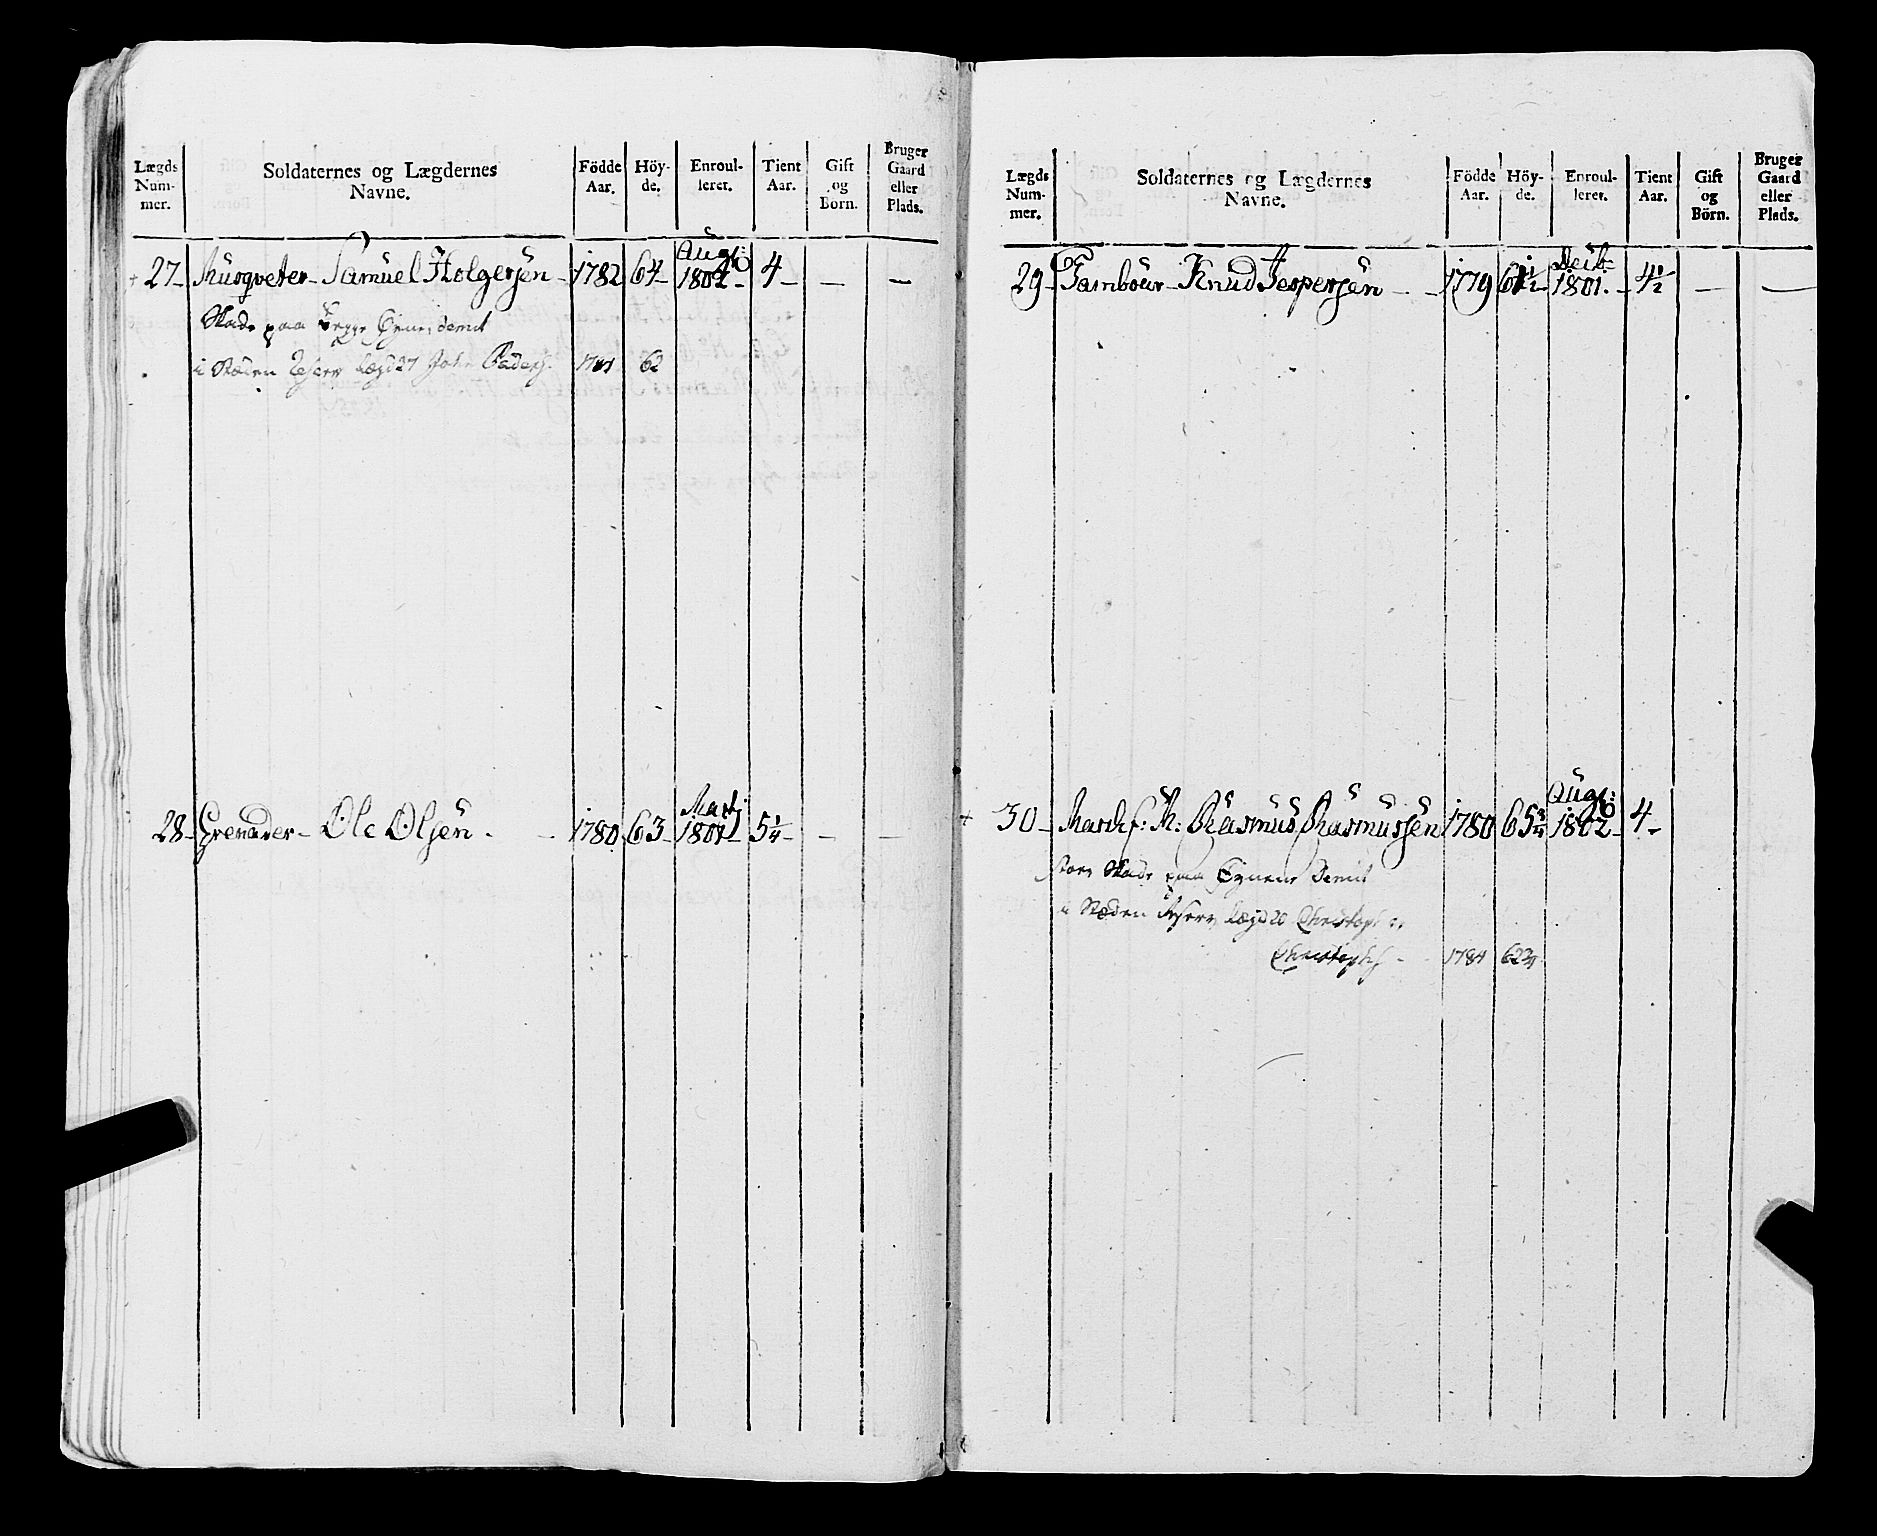 Lægds Num- mer.
Soldaternes og Lægdernes Navne.
Födde Aar.
Höy- de.
Enroul- leret.
Tient Aar.
Gift og Börn.
Bruger Gaard eller Plads.
Augt:
+ 27 - Musqveter - Samuel Holgersen - 1782 64 - 1802 - 4 - — —
Skade paa begge Öyne, demit
i Stæden Reserv Lægd 27 Joh: Peders. 62
Marty
28 - Grenader - Ole Olsen - - 1780 63 - 1801 - 5 1/4 - — —
Lægds Num- mer.
Soldaternes og Lægdernes Navne.
Födde Aar.
Höy- de.
Enroul- leret.
Tient Aar.
Gift og Börn.
Bruger Gaard eller Plads.
29 - Tambour - Knud Jespersen - - 1779 61 1/2 1801. - 4 1/2 — —
Augt:
+ 30 - M: Rasmus Rasmussen 1780 65 3/4 1802 - 4 -
Skade paa Öynene Demit
i Stæden Reserv Lægd 20 Christoph
Christophs - 1784 62 3/4